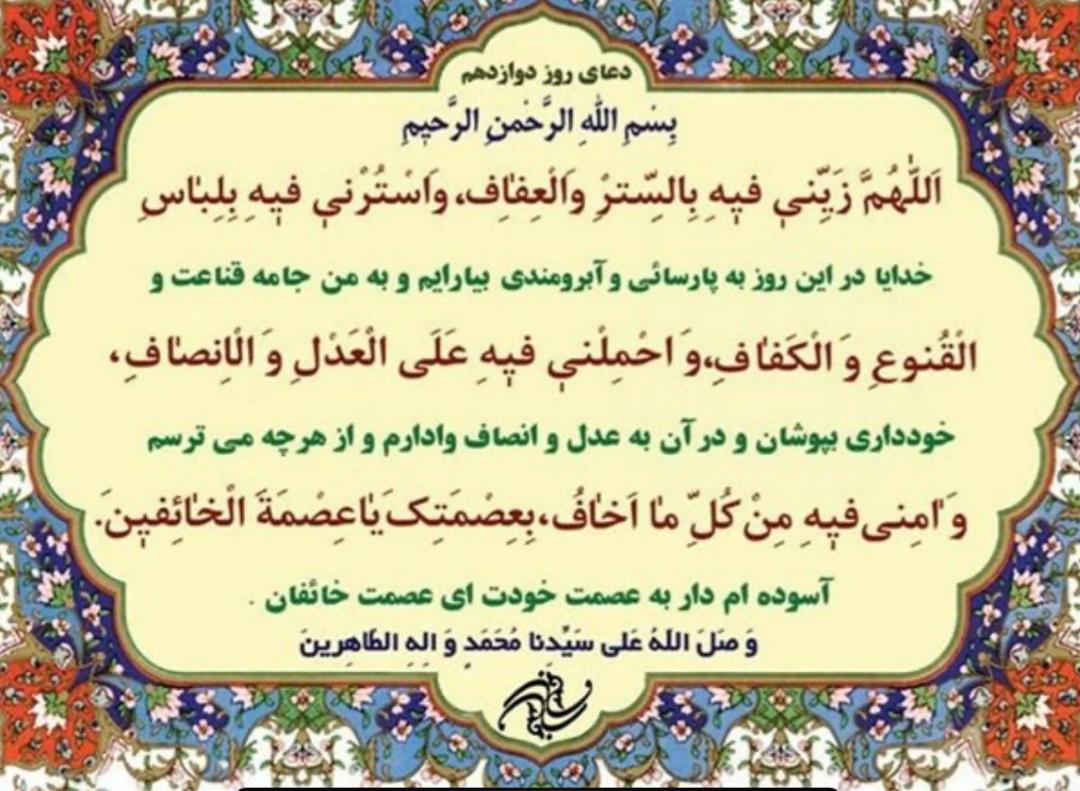 دعای روز دوازدهم
بِسْمِ اللَّهِ الرَّحْمنِ الرَّحیمِ
اَللّهُمَّ زَیِّنّی فیهِ بِالسِّترْ وَالْعِفافِ، وَاسْتُرْنی فیهِ بِلِباسِ
خدایا در این روز به پارسائی و آبرومندی بیارایم و به من جامه قناعت و
الْقُنوعِ وَ الْکَفافِ،وَ احْمِلْنی فیهِ عَلَی الْعَدْلِ وَ الْاِنصافِ،
خودداری بپوشان و در آن به عدل و انصاف وادارم و از هرچه می ترسم
وَ امِنی فیهِ مِنْ کُلِّ ما اَخافُ،بِعِصْمَتِک یَاعِصْمَةَ الْخائِفینَ.
آسوده ام دار به عصمت خودت ای عصمت خائفان .
وَ صَلَ اللَهُ عَلی سَیِّدِنا مُحَمَدٍ وَ الِهِ الطاهِرینَ